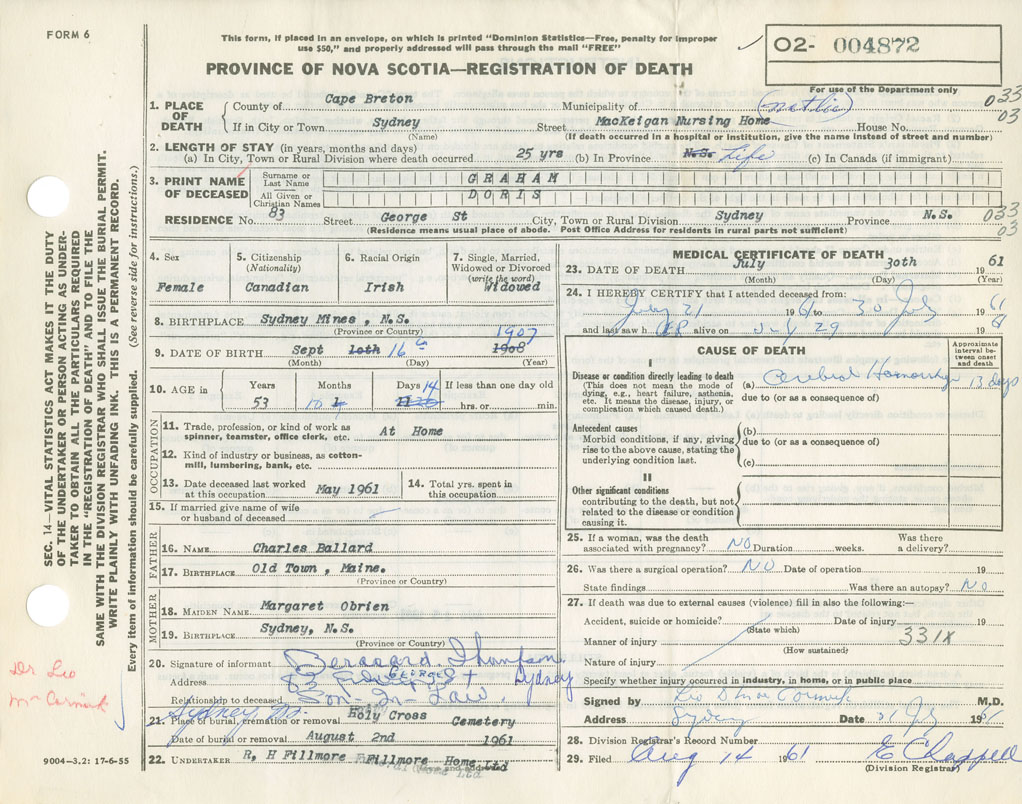 FORM 6
This form, if placed in an envelope, on which is printed "Dominion Statistics—Free, penalty for improper
use $50," and properly addressed will pass through the mail "FREE"
PROVINCE OF NOVA SCOTIA—REGISTRATION OF DEATH
02- 004872
For use of the Department only
033
03
1. PLACE OF DEATH
County of Cape Breton Municipality of
If in City or Town Sydney Street MacKeigan Nursing Home House No.
(Name) (If death occurred in a hospital or institution, give the name instead of street and number)
2. LENGTH OF STAY (in years, months and days)
(a) In City, Town or Rural Division where death occurred 25 yrs (b) In Province N.S. Life (c) In Canada (if immigrant)
3. PRINT NAME OF DECEASED
Surname or Last Name GRAHAM
All Given or Christian Names DORIS
RESIDENCE No. 83 Street George St City, Town or Rural Division Sydney Province N.S. 033
03
(Residence means usual place of abode. Post Office Address for residents in rural parts not sufficient)
4. Sex
Female
5. Citizenship
(Nationality)
Canadian
6. Racial Origin
Irish
7. Single, Married,
Widowed or Divorced
(write the word)
Widowed
8. BIRTHPLACE Sydney Mines, N.S.
(Province or Country)
1907
9. DATE OF BIRTH Sept 10th 16 1908
(Month) (Day) (Year)
10. AGE in
Years Months Days 14 If less than one day old
53 10 hrs. or min.
OCCUPATION
11. Trade, profession, or kind of work as
spinner, teamster, office clerk, etc. At Home
12. Kind of industry or business, as cotton-
mill, lumbering, bank, etc.
13. Date deceased last worked
at this occupation May 1961
14. Total yrs. spent in
this occupation
15. If married give name of wife
or husband of deceased
FATHER
16. NAME Charles Ballard
17. BIRTHPLACE Old Town, Maine.
(Province or Country)
MOTHER
18. MAIDEN NAME Margaret Obrien
19. BIRTHPLACE Sydney, N.S.
(Province or Country)
20. Signature of informant Bernard Thompson
Address 83 George St Sydney
Relationship to deceased Son-In-Law
Sydney
21. Place of burial, cremation or removal Holy Cross Cemetery
Date of burial or removal August 2nd 1961
22. UNDERTAKER R, H Fillmore Fillmore Home Ltd
MEDICAL CERTIFICATE OF DEATH
23. DATE OF DEATH July 30th 1961
(Month) (Day) (Year)
24. I HEREBY CERTIFY that I attended deceased from:
July 21 1961 to 30 July 1961
and last saw her alive on July 29 196
CAUSE OF DEATH
Approximate
interval be-
tween onset
and death
I
Disease or condition directly leading to death
(This does not mean the mode of
dying, e.g., heart failure, asthenia,
etc. It means the disease, injury, or
complication which caused death.)
(a) Cerebral Hemorrhage 13 days
due to (or as a consequence of)
Antecedent causes
Morbid conditions, if any, giving
rise to the above cause, stating the
underlying condition last.
(b)
due to (or as a consequence of)
(c)
II
Other significant conditions
contributing to the death, but not
related to the disease or condition
causing it.
25. If a woman, was the death
associated with pregnancy? NO Duration weeks. Was there
a delivery?
26. Was there a surgical operation? NO Date of operation 19
State findings Was there an autopsy? NO
27. If death was due to external causes (violence) fill in also the following:—
Accident, suicide or homicide? Date of injury 19
(State which)
Manner of injury 331X
(How sustained)
Nature of injury
Specify whether injury occurred in industry, in home, or in public place
Signed by M.D.
Address Sydney Date 31 July 1961
28. Division Registrar's Record Number
29. Filed Aug 14 1961 E Chappell
(Division Registrar)
SEC. 14—VITAL STATISTICS ACT MAKES IT THE DUTY
OF THE UNDERTAKER OR PERSON ACTING AS UNDER-
TAKER TO OBTAIN ALL THE PARTICULARS REQUIRED
IN THE "REGISTRATION OF DEATH" AND TO FILE THE
SAME WITH THE DIVISION REGISTRAR WHO SHALL ISSUE THE BURIAL PERMIT.
WRITE PLAINLY WITH UNFADING INK. THIS IS A PERMANENT RECORD.
Every item of information should be carefully supplied. (See reverse side for instructions.)
Dr Leo
McCormick
9004—3.2: 17-6-55